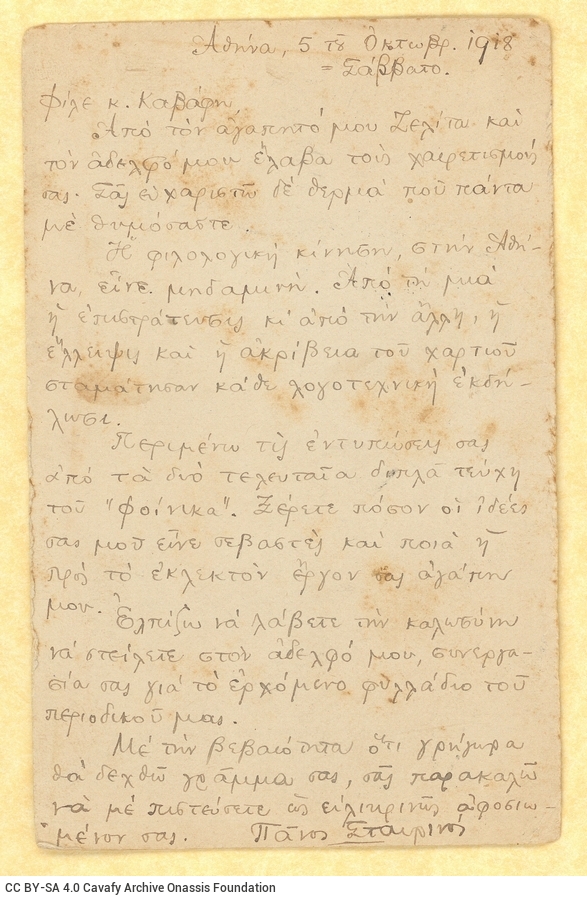 Ἀθήνα, 5 τοῦ Ὀκτωβρ. 1918
= Σάββατο.
Φίλε κ. Καβάφη,
Ἀπό τὸν ἀγαπητό μου Ζελίτα καὶ
τὸν ἀδελφό μου ἔλαβα τοὺς χαιρετισμούς
σας. Σᾶς εὐχαριστῶ δὲ θερμὰ ποῦ πάντα
μὲ θυμόσαστε.
Ἡ φιλολογικὴ κίνησι, στὴν Ἀθή-
να, εἶνε μηδαμινή. Ἀπό τὴ μιὰ
ἡ ἐπιστράτευσις κι' ἀπό τὴν ἄλλη, ἡ
ἔλλειψις καὶ ἡ ἀκρίβεια τοῦ χαρτιοῦ
σταμάτησαν κάθε λογοτεχνικὴ ἐκδή-
λωσι.
Περιμένω τὶς ἐντυπώσεις σας
ἀπό τὰ δυὸ τελευταῖα διπλᾶ τεύχη
τοῦ "Φοίνικα". Ξέρετε πόσον οἱ ἰδέες
σας μοῦ εἶνε σεβαστὲς καὶ ποιὰ ἡ
πρὸς τὸ ἐκλεκτὸν ἔργον σας ἀγάπη
μου.
Ἐλπίζω νὰ λάβετε τὴν καλωσύνη
νὰ στείλετε στὸν ἀδελφό μου, συνεργα-
σία σας γιὰ τὸ ἐρχόμενο φυλλάδιο τοῦ
περιοδικοῦ μας.
Μὲ τὴν βεβαιότητα ὅτι γρήγορα
θὰ δεχθῶ γράμμα σας, σᾶς παρακαλῶ
νὰ μὲ πιστεύσετε ὡς εἰλικρινῶς ἀφοσιω-
μένον σας. Πάνος Σταυρινός
CC BY-SA 4.0 Cavafy Archive Onassis Foundation